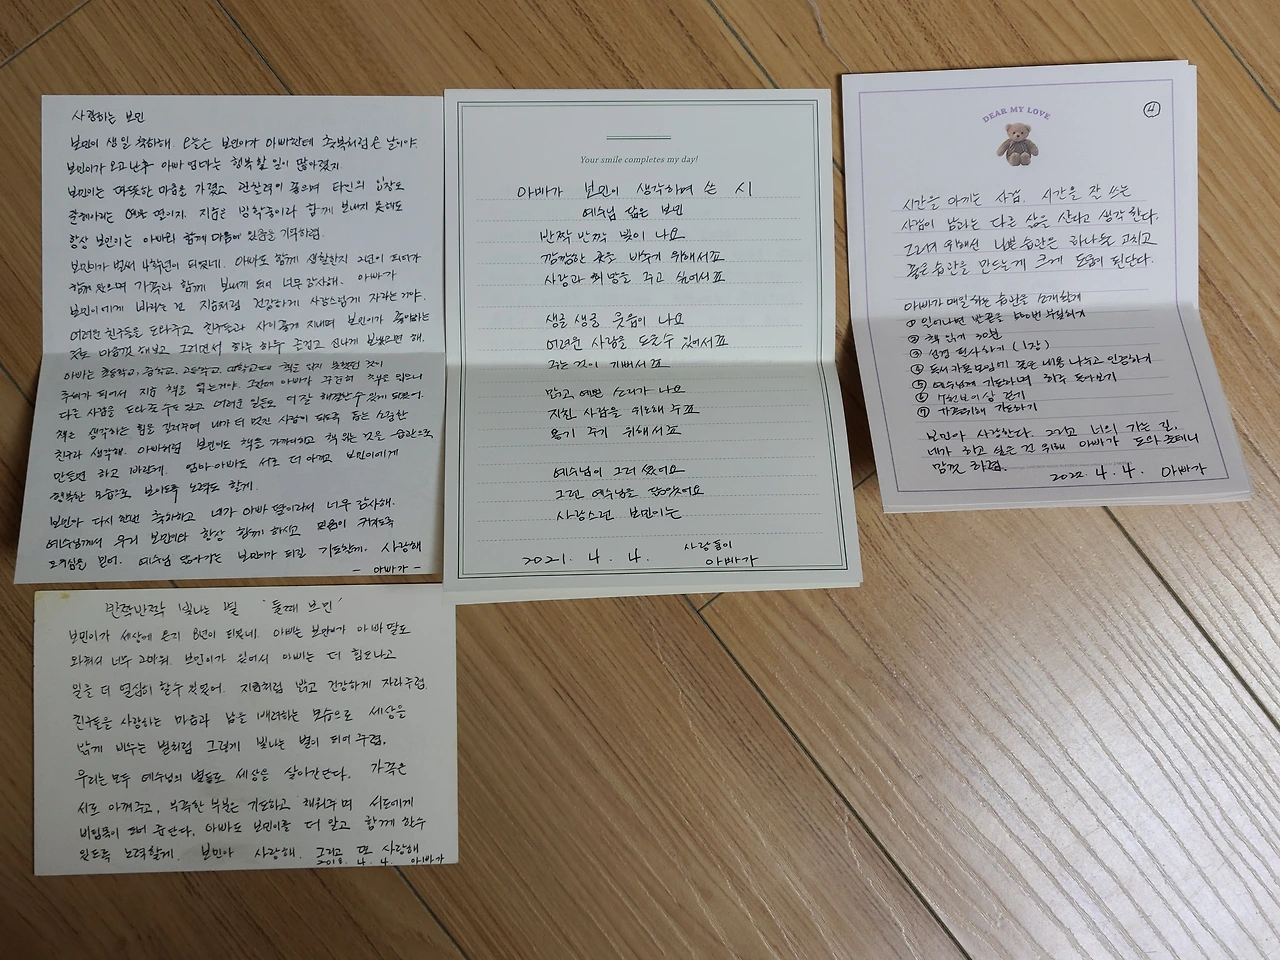 사랑하는 보민
보민이 생일 축하해. 오늘은 보민이가 아빠한테 축복처럼 온 날이야.
보민이가 오고 난후 아빠 엄마는 행복할 일이 많아졌지.
보민이는 따뜻한 마음을 가졌고 관찰력이 좋으며 타인의 입장도
줄 예쁜 딸이지. 지금은 방학중이라 함께 보내지 못해도
항상 보민이는 아빠와 함께 마음에 있음을 기억하렴.
보민이가 벌써 4학년이 되었네. 아빠도 함께 생활한지 2년이 되어가
함께 웃으며 가족과 함께 보내게 되어 너무 감사해. 아빠가
보민이에게 바라는 건 지금처럼 건강하게 사랑스럽게 자라는거야.
어려운 친구들을 도와주고 친구들과 사이좋게 지내며 보민이가 좋아하는
것도 마음껏 해보고 그러면서 하루 하루 즐겁고 신나게 보냈으면 해.
아빠는 초등학교, 중학교, 고등학교, 대학교때 책을 읽지 못했던 것이
후회가 되어서 지금 책을 읽는거야. 그런데 아빠가 꾸준히 책을 읽으니
다른 사람을 도와줄 수도 있고 어려운 일들도 더 잘 해결할수 있게 되었어.
책은 생각하는 힘을 길러주며 내가 더 멋진 사람이 되도록 돕는 소중한
친구라 생각해. 아빠처럼 보민이도 책을 가까이하고 책 읽는 것을 습관으로
만들면 하고 바랄게. 엄마 아빠도 서로 더 아끼고 보민이에게
행복한 모습으로 보이도록 노력도 할게.
보민아 다시 한번 축하하고 네가 아빠 딸이라서 너무 감사해.
예수님께서 우리 보민이와 항상 함께 하시고 믿음이 커지도록
도우심을 믿어. 예수님 닮아가는 보민이가 되길 기도할게. 사랑해
- 아빠가 -
Your smile completes my day!
아빠가 보민이 생각하며 쓴 시
예수님 닮은 보민
반짝 반짝 빛이 나요
깜깜한 곳을 비추기 위해서죠
사랑과 희망을 주고 싶어서죠
생글 생글 웃음이 나요
어려운 사람을 도울수 있어서죠
주는 것이 기뻐서죠
맑고 예쁜 소리가 나요
지친 사람을 위로해 주죠
용기 주기 위해서죠
예수님이 그러셨어요
그런 예수님을 닮았어요
사랑스런 보민이는
2021. 4. 4. 사랑둥이
아빠가
4
DEAR MY LOVE
시간을 아끼는 사람, 시간을 잘 쓰는
사람이 남과는 다른 삶을 산다고 생각한다.
그러기 위해선 나쁜 습관은 하나둘 고치고
좋은 습관을 만드는게 크게 도움이 된단다.
아빠가 매일 하는 습관을 소개할게
① 일어나면 팔굽혀 100번
② 책 읽기 30분
③ 성경 필사하기 (1장)
④ 독서 카톡모임에 좋은 내용 나누고 인증하기
⑤ 예수님께 기도하며 하루 돌아보기
⑥ 7천보이상 걷기
⑦ 가족위해 기도하기
보민아 사랑한다. 그리고 너의 가는 길,
네가 하고 싶은 건 위해 아빠가 도와줄테니
맘껏 하렴.
2022. 4. 4. 아빠가
반짝반짝 빛나는 별 '둘째 보민'
보민이가 세상에 온지 8년이 되었네. 아빠는 보민이가 아빠 딸로
와줘서 너무 고마워. 보민이가 있어서 아빠는 더 힘도나고
일을 더 열심히 할수 있었어. 지금처럼 밝고 건강하게 자라주렴.
친구들을 사랑하는 마음과 남을 배려하는 모습으로 세상을
밝게 비추는 별처럼 그렇게 빛나는 별이 되어주렴.
우리는 모두 예수님의 별들로 세상을 살아간단다. 가족은
서로 아껴주고, 부족한 부분은 기도하고 채워주며 서로에게
버팀목이 되어 준단다. 아빠도 보민이를 더 알고 함께 할수
있도록 노력할게. 보민아 사랑해. 그리고 또 사랑해
2018. 4. 4. 아빠가